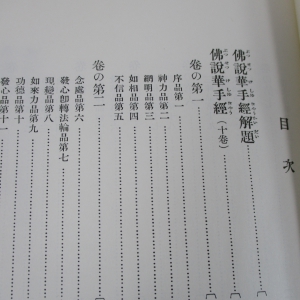 目次
佛說華手經解題
佛說華手經(十卷)
卷の第一
序品第一
神力品第二
網明品第三
如相品第四
不信品第五
卷の第二
念處品第六
發心卽轉法輪品第七
現變品第八
如來力品第九
功德品第十
發心品第十一